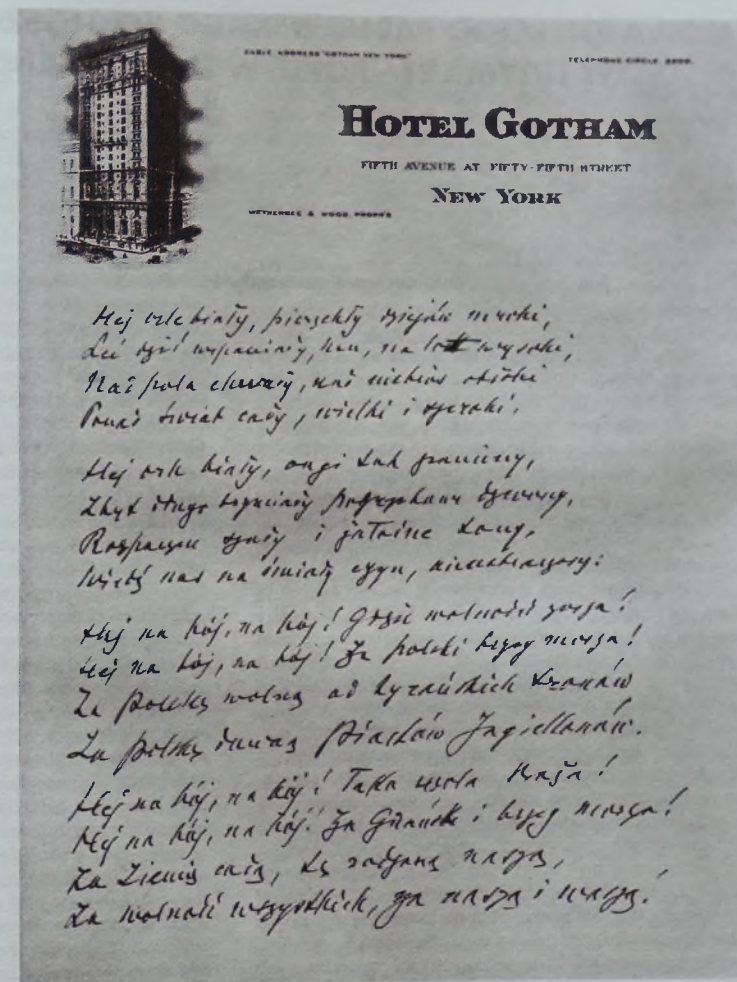 CABLE ADDRESS "GOTHAM NEW YORK"
TELEPHONE CIRCLE
HOTEL GOTHAM
FIFTH AVENUE AT FIFTY-FIFTH STREET
NEW YORK
WETHERBEE & WOOD, PROPR'S
Hej orle biały, pierzchły dziejów mroki,
Leć dziś wspaniały, hen, na lot wysoki,
Nad pola chwały, nad niebios obłoki
Ponad świat cały, wielki i szeroki.
Hej orle biały, ongi tak raniony,
Zbyt długo brzmiały dzwony,
Rozpaczne szały i żałosne tony,
Wiedź nas na śmiały czyn, nieustraszony:
Hej na bój, na bój! Gdzie wolności zorza!
Hej na bój, na bój! Za polski brzeg morza!
Za Polskę wolną od tyrańskich tronów
Za Polskę dawną Piastów Jagiellonów.
Hej na bój, na bój! Taka wola Boża!
Hej na bój, na bój! Za Gdańsk i brzeg morza!
Za Ziemię całą, tę rodzoną naszą,
Za wolność wszystkich, za naszą i waszą!